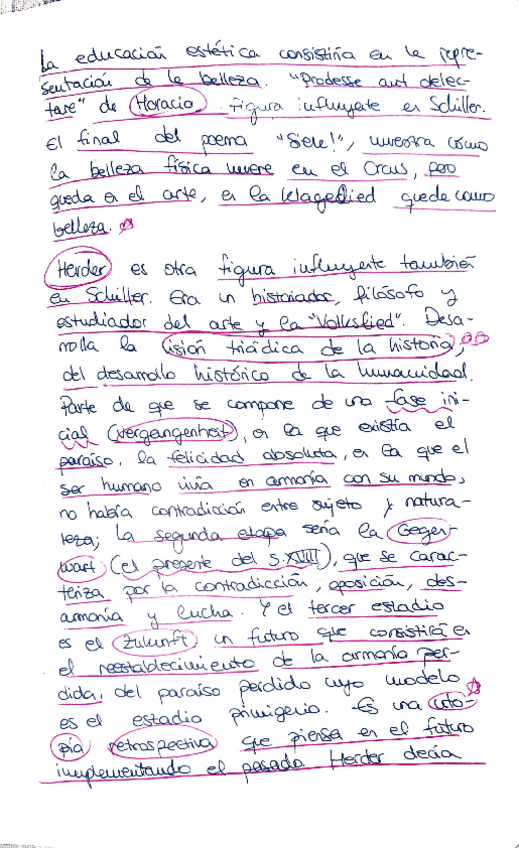 La educación estética consistiría en la repre-
sentación de la belleza. "Prodesse aut delec-
tare" de Horacio. Figura influyente en Schiller.
El final del poema "Siehe!", muestra cómo
la belleza física muere en el Orcus, pero
queda en el arte, en la Klagelied queda como
belleza.
Herder es otra figura influyente también
en Schiller. Era un historiador, filósofo y
estudiador del arte y la "Volkslied". Desa-
rrolla la visión triádica de la historia,
del desarrollo histórico de la humanidad.
Parte de que se compone de una fase ini-
cial (Vergangenheit), en la que existía el
paraíso, la felicidad absoluta, en la que el
ser humano vivía en armonía con su mundo,
no había contradicción entre sujeto y natura-
leza; la segunda etapa sería la Gegen-
wart (el presente del S.XVIII), que se carac-
teriza por la contradicción, oposición, des-
armonía y lucha. Y el tercer estadio
es el Zukunft un futuro que consistirá en
el reestablecimiento de la armonía per-
dida, del paraíso perdido cuyo modelo
es el estadio primigenio. Es una uto-
pía retrospectiva que piensa en el futuro
implementando el pasado. Herder decía